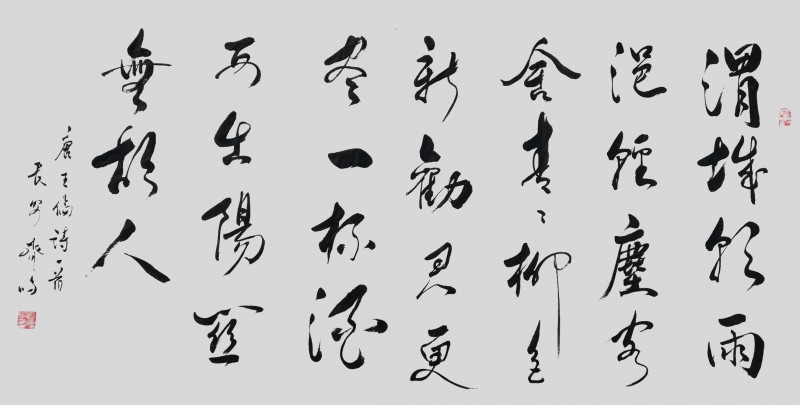 渭城朝雨
浥輕塵客
舍青々柳色
新勸君更
尽一杯酒
西出陽關
無故人
唐王維詩一首
長安